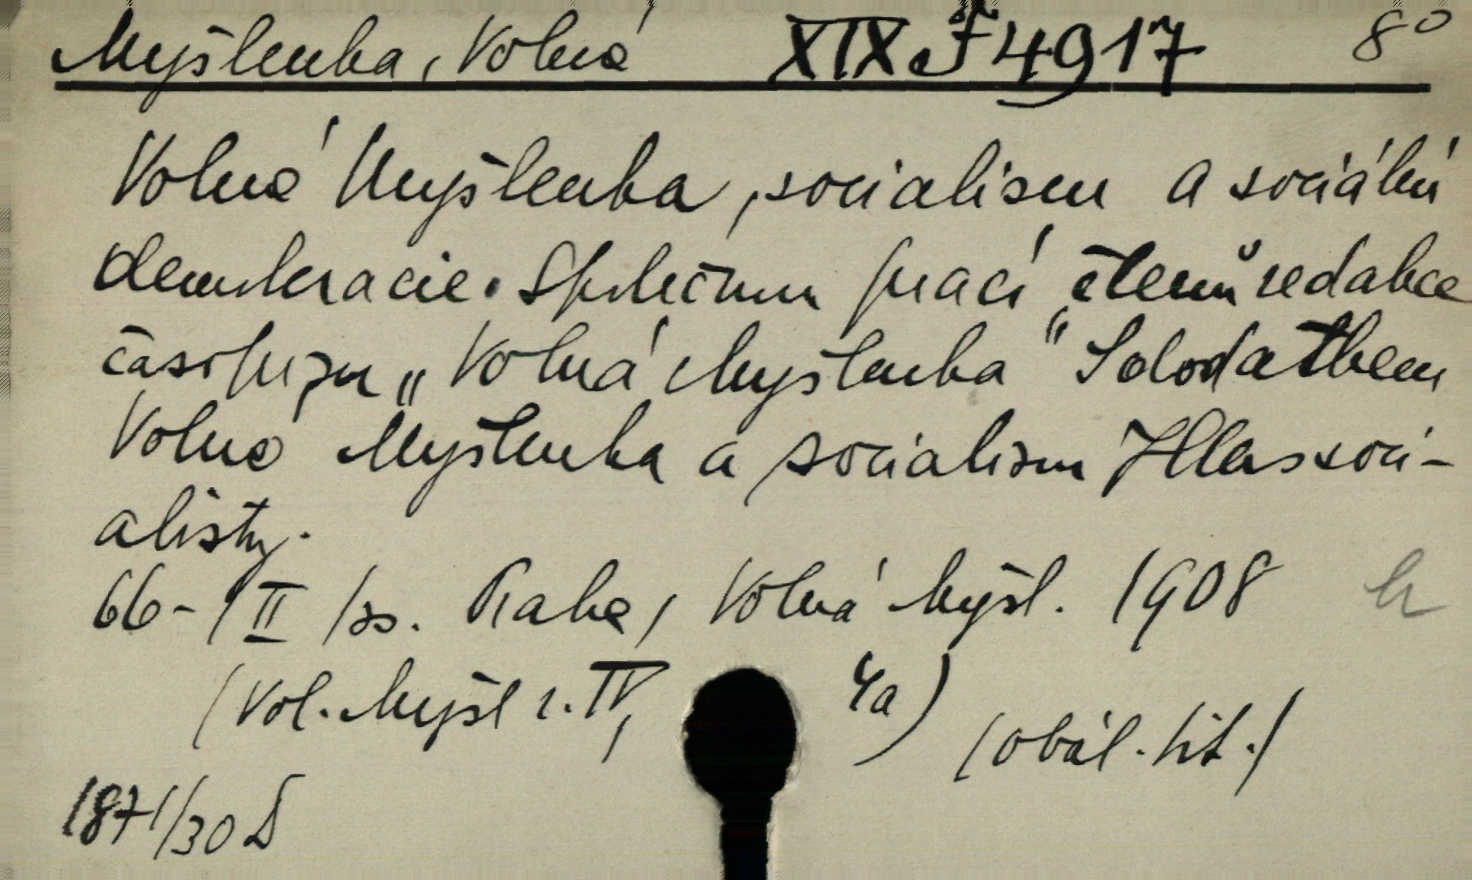 Myšlenka, Volná XIX F 4917 8°
Volná Myšlenka, socialism a sociální
demokracie. Společnou prací členů redakce
časopisu „Volná Myšlenka" S dodatkem
Volná Myšlenka a socialism /Hlas soci-
alisty.
66-/II/ss. Praha, Volná Myšl. 1908
(Vol. Myšl r. IV, 4a) (obál. tit.)
1871/30 D